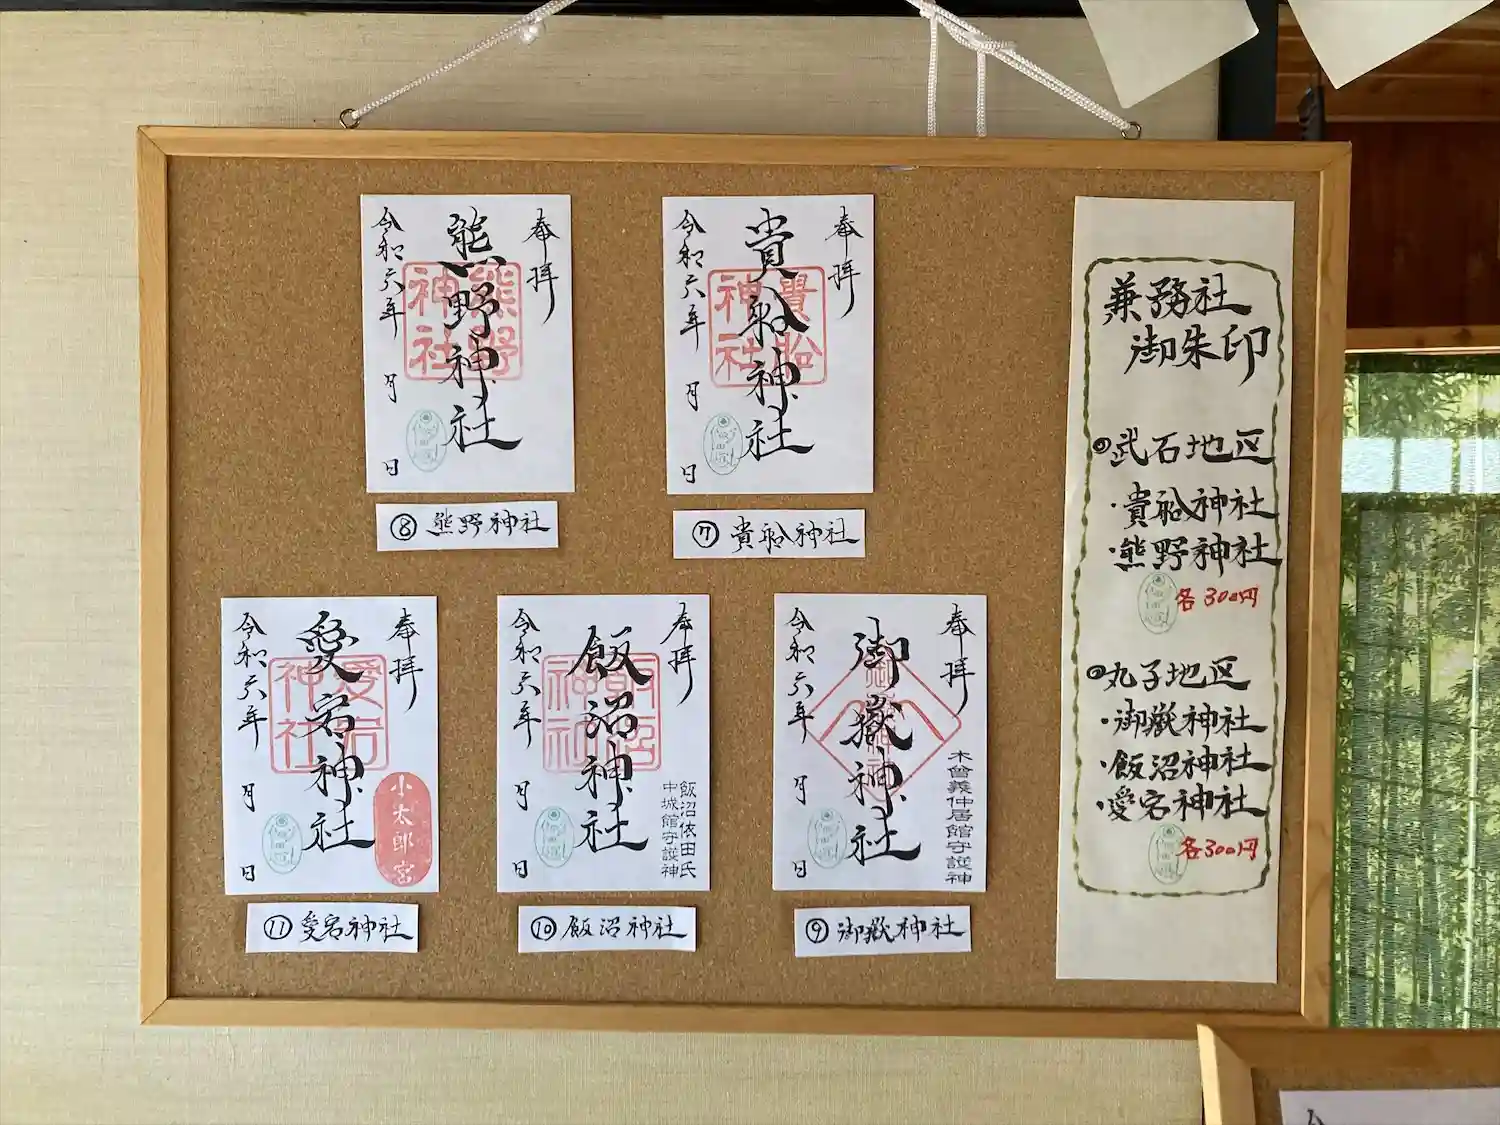 兼務社
御朱印
武石地区
・貴船神社
・熊野神社
各300円
丸子地区
・御嶽神社
・飯沼神社
・愛宕神社
各300円
奉拝
貴船神社
貴船神社
令和六年 月 日
⑦貴船神社
奉拝
熊野神社
熊野神社
令和六年 月 日
⑧熊野神社
奉拝
御嶽神社
木曾義仲居館守護神
令和六年 月 日
⑨御嶽神社
奉拝
飯沼神社
飯沼神社
飯沼依田氏
中城館守護神
令和六年 月 日
⑩飯沼神社
奉拝
愛宕神社
愛宕神社
小太郎宮
令和六年 月 日
⑪愛宕神社